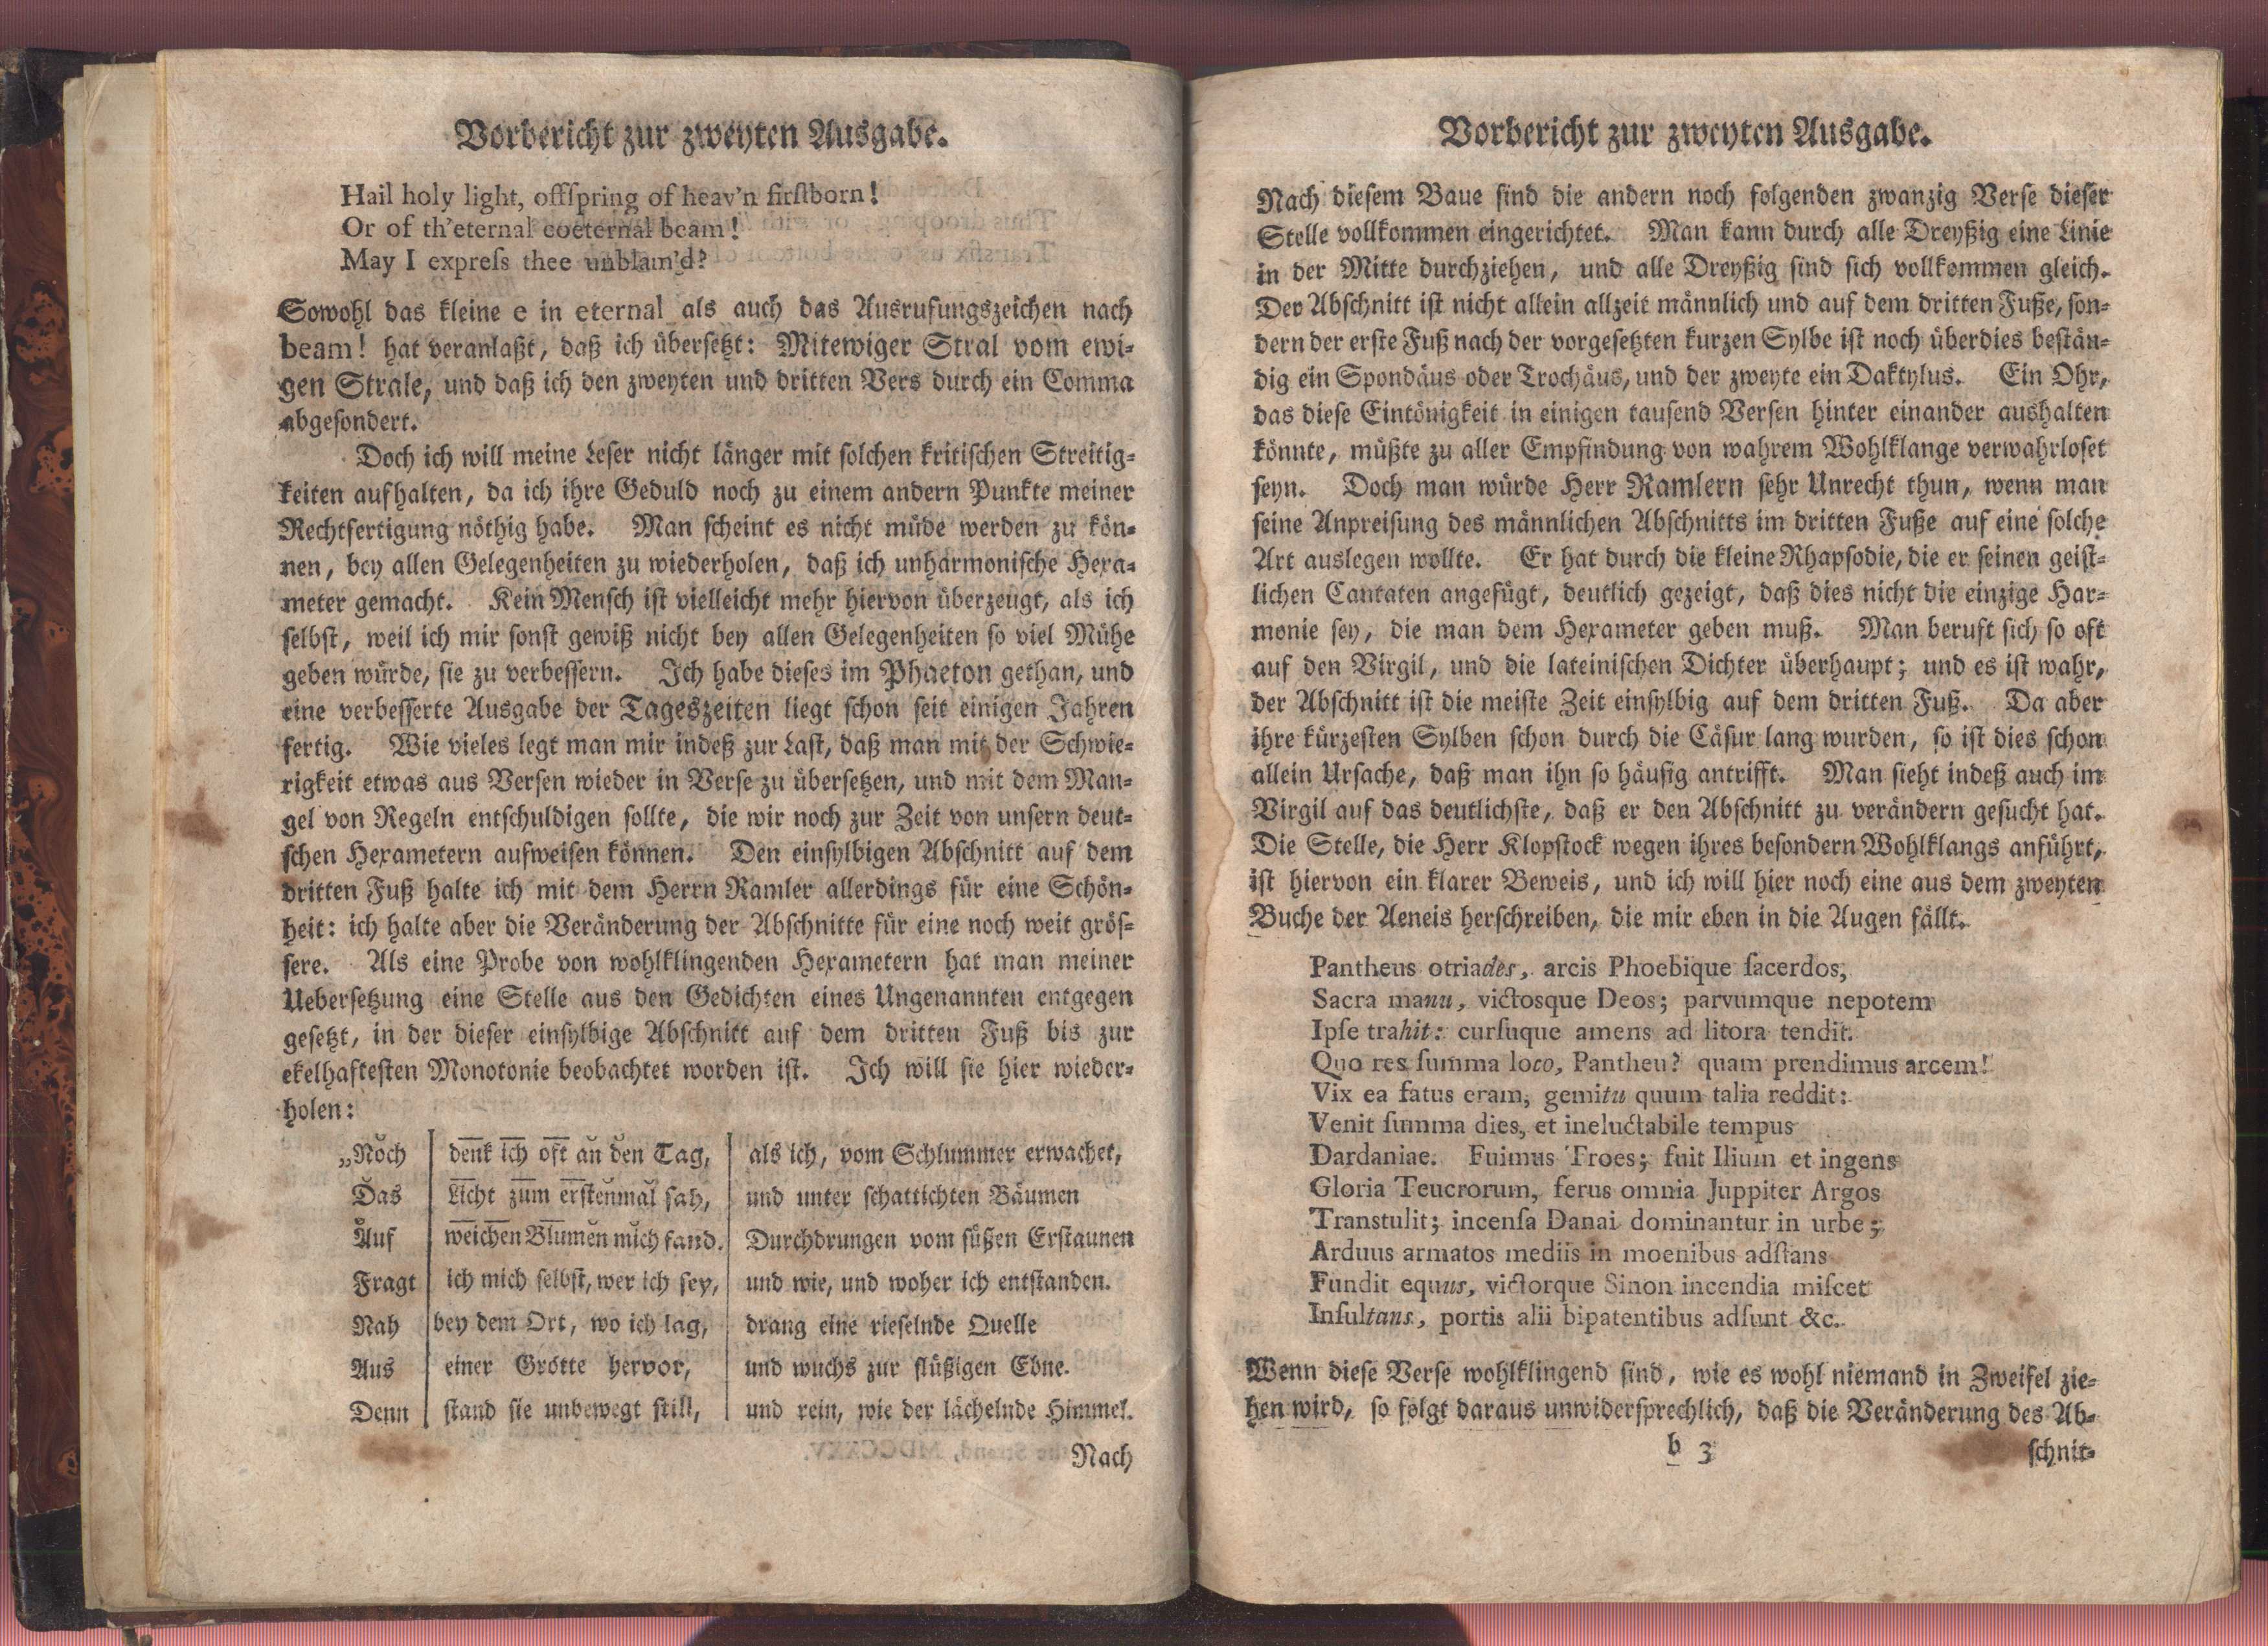 Vorbericht zur zweyten Ausgabe.
Hail holy light, offſpring of heav'n firſtborn!
Or of th'eternal coeternal beam!
May I expreſs thee unblam'd?
Sowohl das kleine e in eternal als auch das Ausrufungszeichen nach
beam! hat veranlaßt, daß ich überſetzt: Mitewiger Stral vom ewi-
gen Strale, und daß ich den zweyten und dritten Vers durch ein Comma
abgeſondert.
Doch ich will meine Leſer nicht länger mit ſolchen kritiſchen Streitig-
keiten aufhalten, da ich ihre Geduld noch zu einem andern Punkte meiner
Rechtfertigung nöthig habe. Man ſcheint es nicht müde werden zu kön-
nen, bey allen Gelegenheiten zu wiederholen, daß ich unharmoniſche Hexa-
meter gemacht. Kein Menſch iſt vielleicht mehr hiervon überzeugt, als ich
ſelbſt, weil ich mir ſonſt gewiß nicht bey allen Gelegenheiten ſo viel Mühe
geben würde, ſie zu verbeſſern. Ich habe dieſes im Phaeton gethan, und
eine verbeſſerte Ausgabe der Tageszeiten liegt ſchon ſeit einigen Jahren
fertig. Wie vieles legt man mir indeß zur Laſt, daß man mit der Schwie-
rigkeit etwas aus Verſen wieder in Verſe zu überſetzen, und mit dem Man-
gel von Regeln entſchuldigen ſollte, die wir noch zur Zeit von unſern deut-
ſchen Hexametern aufweiſen können. Den einſylbigen Abſchnitt auf dem
dritten Fuß halte ich mit dem Herrn Ramler allerdings für eine Schön-
heit: ich halte aber die Veränderung der Abſchnitte für eine noch weit gröſ-
ſere. Als eine Probe von wohlklingenden Hexametern hat man meiner
Ueberſetzung eine Stelle aus den Gedichten eines Ungenannten entgegen
geſetzt, in der dieſer einſylbige Abſchnitt auf dem dritten Fuß bis zur
ekelhafteſten Monotonie beobachtet worden iſt. Ich will ſie hier wieder-
holen:
„Noch denk ich oft an den Tag, als ich, vom Schlummer erwachet,
Das Licht zum erſtenmal ſah, und unter ſchattichten Bäumen
Auf weichen Blumen mich fand. Durchdrungen vom ſüßen Erſtaunen
Fragt ich mich ſelbſt, wer ich ſey, und wie, und woher ich entſtanden.
Nah bey dem Ort, wo ich lag, drang eine rieſelnde Quelle
Aus einer Grotte hervor, und wuchs zur flüßigen Ebne.
Denn ſtand ſie unbewegt ſtill, und rein, wie der lächelnde Himmel.
Nach
Vorbericht zur zweyten Ausgabe.
Nach dieſem Baue ſind die andern noch folgenden zwanzig Verſe dieſer
Stelle vollkommen eingerichtet. Man kann durch alle Dreyßig eine Linie
in der Mitte durchziehen, und alle Dreyßig ſind ſich vollkommen gleich.
Der Abſchnitt iſt nicht allein allzeit männlich und auf dem dritten Fuße, ſon-
dern der erſte Fuß nach der vorgeſetzten kurzen Sylbe iſt noch überdies beſtän-
dig ein Spondäus oder Trochäus, und der zweyte ein Daktylus. Ein Ohr,
das dieſe Eintönigkeit in einigen tauſend Verſen hinter einander aushalten
könnte, müßte zu aller Empfindung von wahrem Wohlklange verwahrloſet
ſeyn. Doch man würde Herr Ramlern ſehr Unrecht thun, wenn man
ſeine Anpreiſung des männlichen Abſchnitts im dritten Fuße auf eine ſolche
Art auslegen wollte. Er hat durch die kleine Rhapſodie, die er ſeinen geiſt-
lichen Cantaten angefügt, deutlich gezeigt, daß dies nicht die einzige Har-
monie ſey, die man dem Hexameter geben muß. Man beruft ſich ſo oft
auf den Virgil, und die lateiniſchen Dichter überhaupt; und es iſt wahr,
der Abſchnitt iſt die meiſte Zeit einſylbig auf dem dritten Fuß. Da aber
ihre kürzeſten Sylben ſchon durch die Cäſur lang wurden, ſo iſt dies ſchon
allein Urſache, daß man ihn ſo häufig antrifft. Man ſieht indeß auch im
Virgil auf das deutlichſte, daß er den Abſchnitt zu verändern geſucht hat.
Die Stelle, die Herr Klopſtock wegen ihres beſondern Wohlklangs anführt,
iſt hiervon ein klarer Beweis, und ich will hier noch eine aus dem zweyten
Buche der Aeneis herſchreiben, die mir eben in die Augen fällt.
Pantheus otriades, arcis Phoebique ſacerdos,
Sacra manu, victosque Deos; parvumque nepotem
Ipſe trahit: curſuque amens ad litora tendit.
Quo res ſumma loco, Pantheu? quam prendimus arcem!
Vix ea fatus eram, gemitu quum talia reddit:
Venit ſumma dies, et ineluctabile tempus
Dardaniae. Fuimus Troes; fuit Ilium et ingens
Gloria Teucrorum, ferus omnia Juppiter Argos
Transtulit; incenſa Danai dominantur in urbe;
Arduus armatos mediis in moenibus adſtans
Fundit equus, victorque Sinon incendia miſcet
Inſultans, portis alii bipatentibus adſunt &c.
Wenn dieſe Verſe wohlklingend ſind, wie es wohl niemand in Zweifel zie-
hen wird, ſo folgt daraus unwiderſprechlich, daß die Veränderung des Ab-
b 3
ſchnit-